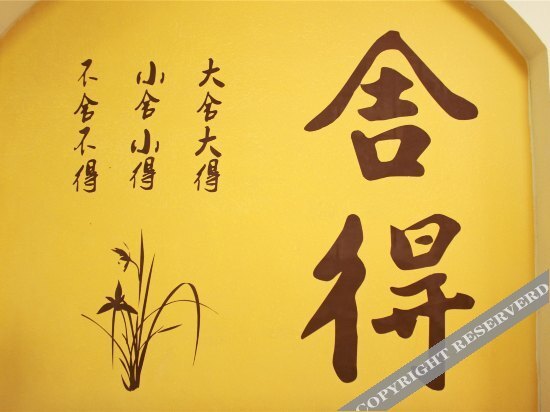 舍得
大舍大得
小舍小得
不舍不得
COPYRIGHT RESERVERD